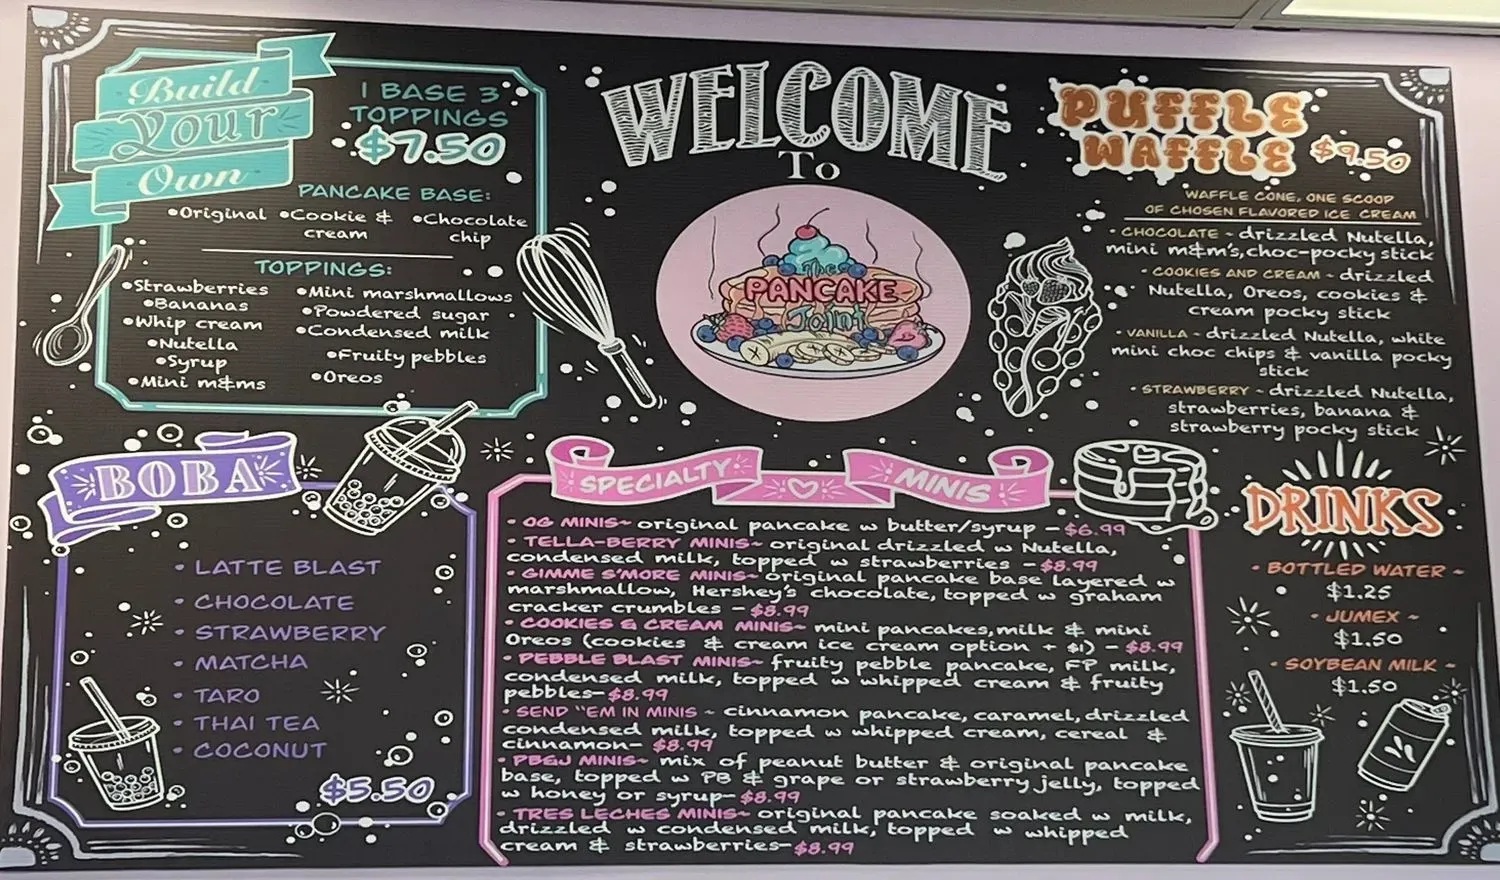 Build
Your
Own
1 BASE 3
TOPPINGS
$7.50
PANCAKE BASE:
•Original •Cookie & •Chocolate
cream chip
TOPPINGS:
•Strawberries
•Bananas
•Whip cream
•Nutella
•Syrup
•Mini m&ms
•Mini marshmallows
•Powdered sugar
•Condensed milk
•Fruity pebbles
•Oreos
WELCOME
To
The
PANCAKE
Joint
PUFFLE
WAFFLE $9.50
WAFFLE CONE, ONE SCOOP
OF CHOSEN FLAVORED ICE CREAM
• CHOCOLATE ~ drizzled Nutella,
mini m&m's,choc-pocky stick
• COOKIES AND CREAM ~ drizzled
Nutella, Oreos, cookies &
cream pocky stick
• VANILLA ~ drizzled Nutella, white
mini choc chips & vanilla pocky
stick
• STRAWBERRY ~ drizzled Nutella,
strawberries, banana &
strawberry pocky stick
BOBA
• LATTE BLAST
• CHOCOLATE
• STRAWBERRY
• MATCHA
• TARO
• THAI TEA
• COCONUT
$5.50
SPECIALTY MINIS
• OG MINIS~ original pancake w butter/syrup -$6.99
• TELLA-BERRY MINIS~ original drizzled w Nutella,
condensed milk, topped w strawberries -$8.99
• GIMME S'MORE MINIS~ original pancake base layered w
marshmallow, Hershey's chocolate, topped w graham
cracker crumbles - $8.99
• COOKIES & CREAM MINIS~ mini pancakes,milk & mini
Oreos (cookies & cream ice cream option + $1) - $8.99
• PEBBLE BLAST MINIS~ fruity pebble pancake, FP milk,
condensed milk, topped w whipped cream & fruity
pebbles-$8.99
• SEND "EM IN MINIS ~ cinnamon pancake, caramel, drizzled
condensed milk, topped w whipped cream, cereal &
cinnamon- $8.99
• PB&J MINIS~ mix of peanut butter & original pancake
base, topped w PB & grape or strawberry jelly, topped
w honey or syrup-$8.99
• TRES LECHES MINIS~ original pancake soaked w milk,
drizzled w condensed milk, topped w whipped
cream & strawberries-$8.99
DRINKS
• BOTTLED WATER ~
$1.25
• JUMEX ~
$1.50
• SOYBEAN MILK ~
$1.50